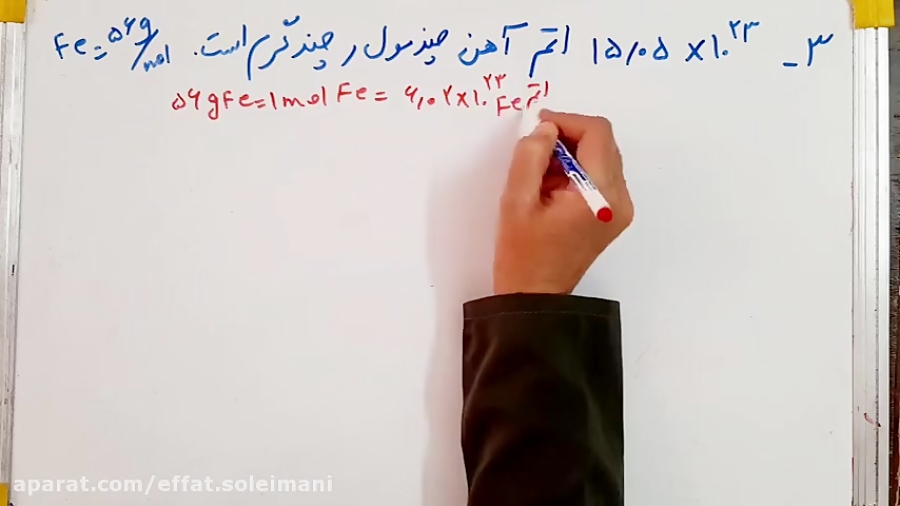 ۳ - ۱۵٫۰۵ × ۱۰^۲۳ اتم آهن چند مول و چند گرم است. Fe = ۵۶ g/mol
۵۶ g Fe = ۱ mol Fe = ۶٫۰۲ × ۱۰^۲۳ اتم Fe
aparat.com/effat.soleimani